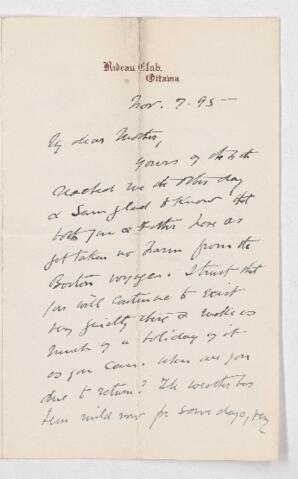 Rideau Club,
Ottawa
Nov. 7-95-
My dear Mother,
Yours of the 4th
reached me this day
& I am glad to know that
both you & Father have as
yet taken no harm from the
Boston voyage. I trust that
you will continue to exist
very quietly there & make as
much of a holiday of it
as you can. When are you
due to return? The weather has
been mild now for some days, very